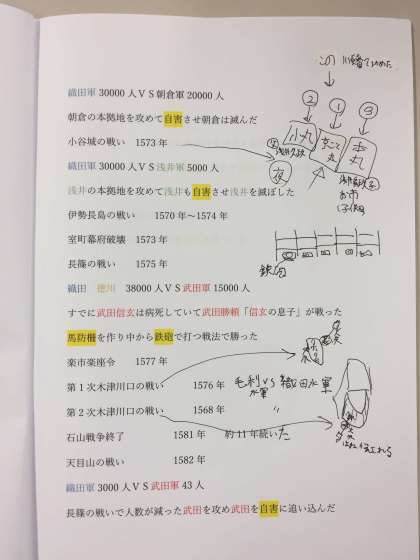 織田軍 30000 人ＶＳ朝倉軍 20000 人
朝倉の本拠地を攻めて自害させ朝倉は滅んだ
小谷城の戦い 1573 年
織田軍 30000 人ＶＳ浅井軍 5000 人
浅井の本拠地を攻めて浅井も自害させ浅井を滅ぼした
伊勢長島の戦い 1570 年～1574 年
室町幕府破壊 1573 年
長篠の戦い 1575 年
織田 徳川 38000 人ＶＳ武田軍 15000 人
すでに武田信玄は病死していて武田勝頼「信玄の息子」が戦った
馬防柵を作り中から鉄砲で打つ戦法で勝った
楽市楽座令 1577 年
第 1 次木津川口の戦い 1576 年
毛利 VS 織田水軍
水軍
第 2 次木津川口の戦い 1568 年
〃
石山戦争終了 1581 年 約 11 年続いた
天目山の戦い 1582 年
織田軍 3000 人ＶＳ武田軍 43 人
長篠の戦いで人数が減った武田を攻め武田を自害に追い込んだ
この順番でせめた
② ① ③
小丸
京ごく丸
本丸
夜
お市
鉄砲